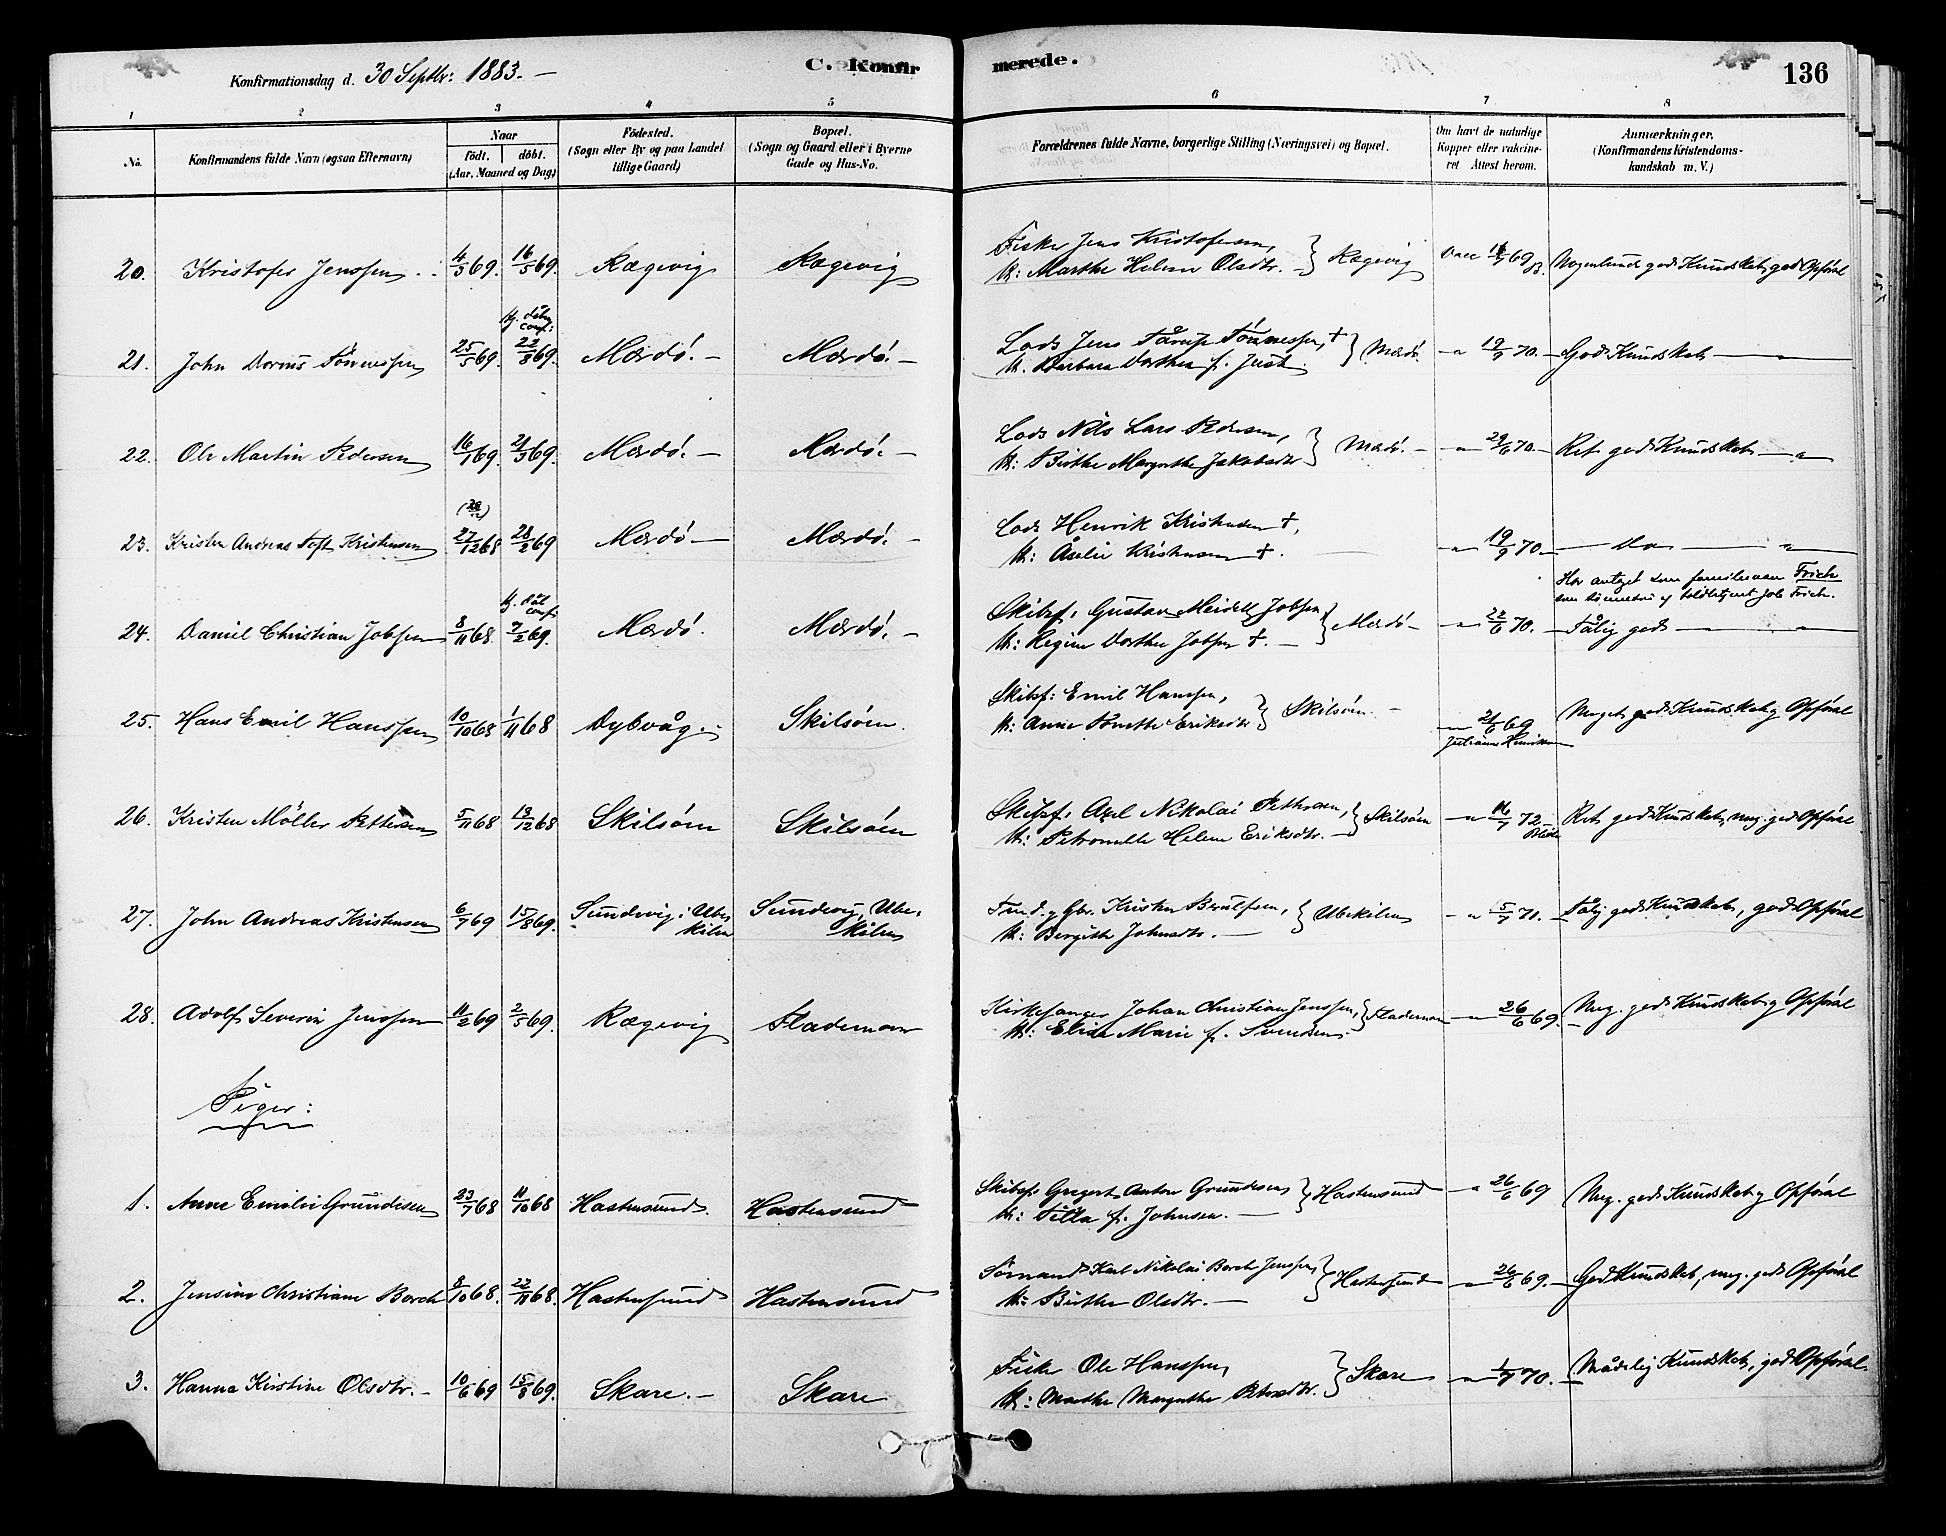 Konfirmationsdag d. 30 Septbr: 1883. —
C. Konfirmerede.
136
1 2 3 4 5 6 7 8
No.
Konfirmandens fulde Navn (ogsaa Efternavn)
Naar
födt. döbt.
(Aar, Maaned og Dag)
Födested.
(Sogn eller By og paa Landet
tillige Gaard)
Bopæl.
(Sogn og Gaard eller i Byerne
Gade og Hus-No.
Forældrenes fulde Navne, borgerlige Stilling (Næringsvei) og Bopæl.
Om havt de naturlige
Kopper eller vakcine-
ret Attest herom.
Anmærkninger.
(Konfirmandens Kristendoms-
kundskab m. V.)
20. Kristofer Jenssen 4/5 69. 16/5 69. Rægevig Rægevig
Fisker Jens Kristofersen,
H: Marthe Helene Olsdtr. } Rægevig
Nogenlunde god Kundskab, god Opførsel
21. John Dorius Tönnessen 25/5 69. 22/8 69. Mærdö. — Mærdö. —
Lods Jens Tårup Tönnessen † } Mærdö.
H. Barbara Dorthea f. Just. 19/9 70. — God Kundskab — „ —
22. Ole Martin Pedersen 16/1 69. 21/3 69. Mærdö. — Mærdö. —
Lods Nils Lars Pedersen,
H: Birthe Margrethe Jakobsdtr } Mærdö. — 29/6 70. — Ret god Kundskab — „ —
23. Kristen Andreas Toft Kristensen 27/12 68 28/2 69 Mærdö — Mærdö. —
Lods Henrik Kristensen †,
H: Åselie Kristensen †. 19/9 70. — Do — „ —
Har antaget som familienavn Frich
24. Daniel Christian Jobsen 8/11 68 7/2 69. Mærdö. Mærdö. —
Skibsf. Gustav Meidell Jobsen
H: Regine Dorthea Jobsen †. — } Mærdö — 22/6 70. — Tålig god — „ —
25. Hans Emil Hanssen 10/10 68 1/11 68 Dybvåg. — Skilsöen.
Skibsf: Emil Hanssen,
H: Anne Tomette Eriksdtr } Skilsöen. — 21/6 69
Meget god Kundskab og Opførsel
26. Kristen Möller Pettersen 5/11 68 13/12 68 Skilsöen Skilsöen
Skibsf. Axel Nikolai Pettersen,
H: Petronelle Helene Eriksdtr. — } Skilsöen 72 Ret god Kundskab, meg. god Opførsel
27. John Andreas Kristensen 6/7 69 15/8 69. Sundevig i Ube-
kilen Sundevig, Ube-
kilen
H: Bergithe Johnsdtr. — } Ubekilen 5/7 71. — Tålig god Kundskab, god Opførsel
28. Adolf Severin Jenssen 11/2 69 2/5 69. Rægevig Flademoen
Kirkesanger Johan Christian Jenssen,
H: Elise Marie f. Svendsen. } Flademoen — 26/6 69. Meg. god Kundskab og Opførsel
Piger:
1. Anne Emilie Grundesen 23/7 68 11/10 68 Hastensund. Hastensund
Skibsf. Gregert Anton Grundesen
H: Tilla f. Johnsen. — } Hastensund — 26/6 69 Meg. god Kundskab og Opførsel
2. Jensine Christiane Borch 8/10 68. 22/11 68. Hastensund Hastensund
Sömand Karl Nikolai Borch Jenssen,
H: Birthe Olsdtr. — } Hastensund — 26/6 69. — God Kundskab, meg. god Opførsel
3. Hanna Kirstine Olsdtr. — 10/6 69 15/8 69. Skare. — Skare
Fisker Ole Hanssen,
H: Marthe Margrethe } Skare — 1/7 70. — Mådelig Kundskab, god Opførsel.